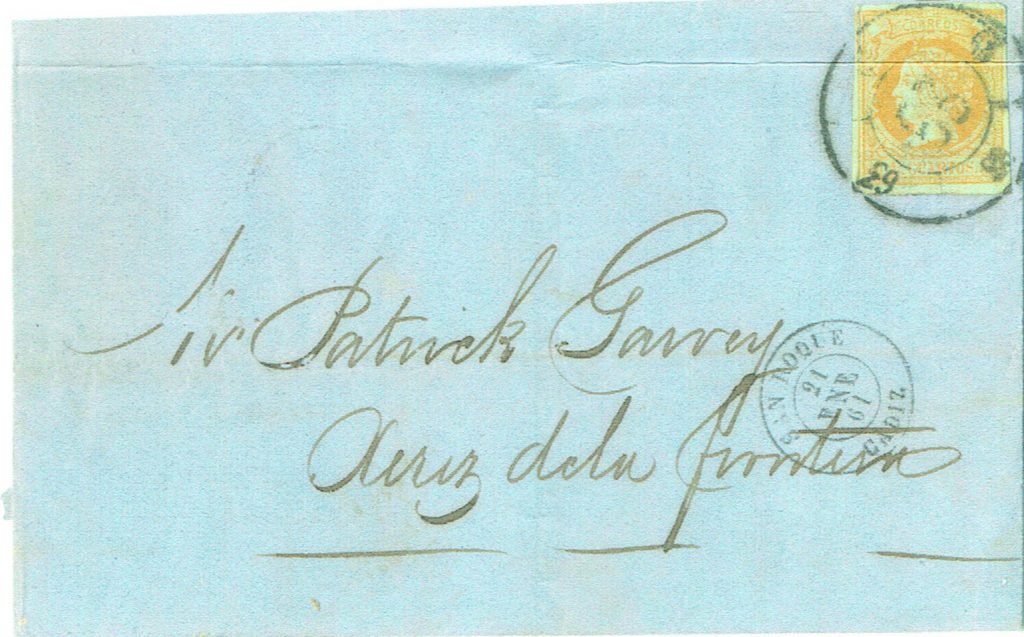 CORREOS
29
63
Sr Patrick Garvey
SAN ROQUE
21
ENE
61
CADIZ
Xerez dela frontera